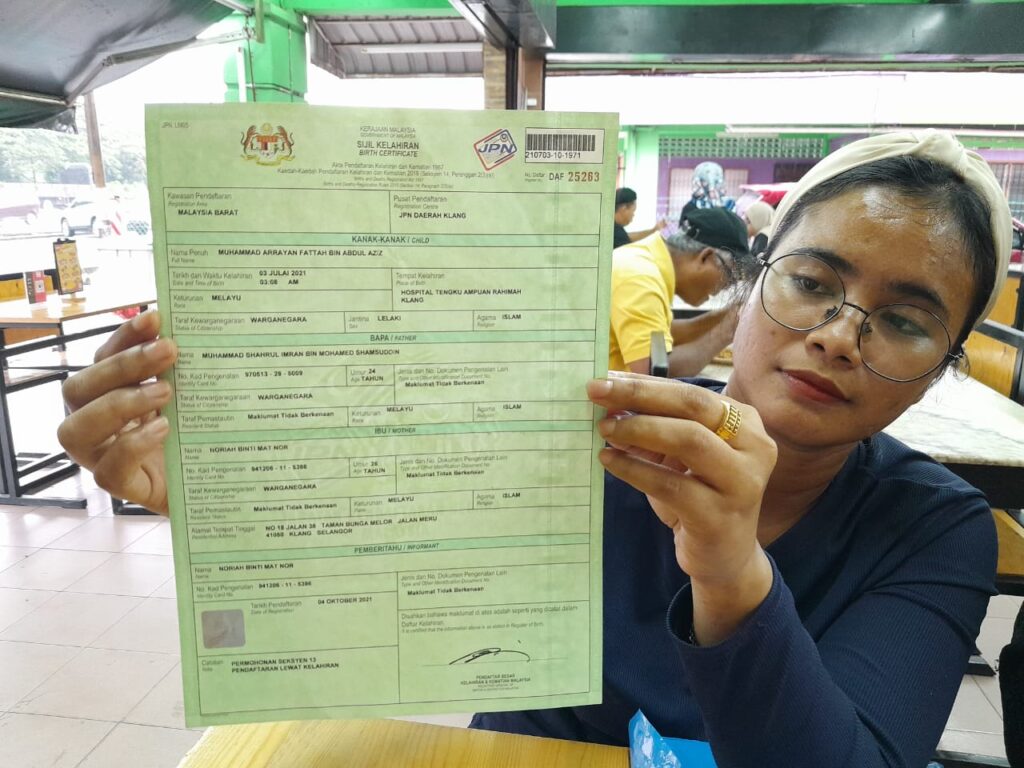 JPN. LM05
KERAJAAN MALAYSIA
GOVERNMENT OF MALAYSIA
SIJIL KELAHIRAN
BIRTH CERTIFICATE
Akta Pendaftaran Kelahiran dan Kematian 1957
Kaedah-Kaedah Pendaftaran Kelahiran dan Kematian 2019 (Seksyen 14, Perenggan 2(3)(e))
JPN
210703-10-1971
No. Daftar DAF 25263
Register No.
Kawasan Pendaftaran
Registration Area
MALAYSIA BARAT
Pusat Pendaftaran
Registration Centre
JPN DAERAH KLANG
KANAK-KANAK / CHILD
Nama Penuh MUHAMMAD ARRAYAN FATTAH BIN ABDUL AZIZ
Full Name
Tarikh dan Waktu Kelahiran 03 JULAI 2021
Date and Time of Birth 03:08 AM
Tempat Kelahiran
Place of Birth
HOSPITAL TENGKU AMPUAN RAHIMAH
KLANG
Keturunan MELAYU
Race
Taraf Kewarganegaraan WARGANEGARA
Status of Citizenship
Jantina LELAKI
Sex
Agama ISLAM
Religion
BAPA / FATHER
Nama MUHAMMAD SHAHRUL IMRAN BIN MOHAMED SHAMSUDDIN
Name
No. Kad Pengenalan 970513 - 26 - 5009
Identity Card No.
Umur 24
Age TAHUN
Jenis dan No. Dokumen Pengenalan Lain
Type and Other Identification Document No.
Maklumat Tidak Berkenaan
Taraf Kewarganegaraan WARGANEGARA
Status of Citizenship
Taraf Pemastautin Maklumat Tidak Berkenaan
Resident Status
Keturunan MELAYU
Race
Agama ISLAM
Religion
IBU / MOTHER
Nama NORIAH BINTI MAT NOR
Name
No. Kad Pengenalan 941206 - 11 - 5386
Identity Card No.
Umur 26
Age TAHUN
Jenis dan No. Dokumen Pengenalan Lain
Type and Other Identification Document No.
Maklumat Tidak Berkenaan
Taraf Kewarganegaraan WARGANEGARA
Status of Citizenship
Taraf Pemastautin Maklumat Tidak Berkenaan
Resident Status
Keturunan MELAYU
Race
Agama ISLAM
Religion
Alamat Tempat Tinggal NO 18 JALAN 36 TAMAN BUNGA MELOR JALAN MERU
Residential Address 41050 KLANG SELANGOR
PEMBERITAHU / INFORMANT
Nama NORIAH BINTI MAT NOR
Name
No. Kad Pengenalan 941206 - 11 - 5386
Identity Card No.
Jenis dan No. Dokumen Pengenalan Lain
Type and Other Identification Document No.
Maklumat Tidak Berkenaan
Tarikh Pendaftaran 04 OKTOBER 2021
Date of Registration
Disahkan bahawa maklumat di atas adalah seperti yang dicatat dalam
Daftar Kelahiran.
It is certified that the information above is as stated in Register of Birth.
Catatan PERMOHONAN SEKSYEN 13
Note PENDAFTARAN LEWAT KELAHIRAN
PENDAFTAR BESAR
KELAHIRAN & KEMATIAN MALAYSIA